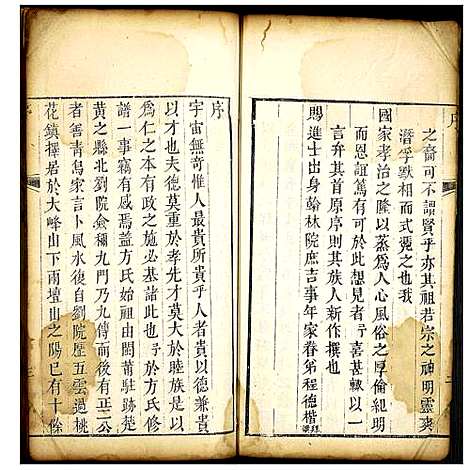 序
之裔可不謂賢乎亦其祖若宗之神明靈爽
潛孚默相而式憑之也我
國家孝治之隆以蒸為人心風俗之厚倫紀明
而恩誼篤有可於此想見者予喜甚輒以一
言弁其首原序則其族人新作撰也
賜進士出身翰林院庶吉事年家眷弟程德楷拜譔
序
宇宙無奇惟人最貴所貴乎人者貴以德兼貴
以才也夫德莫重於孝先才莫大於睦族是孝
為仁之本有政之施必基諸此予於方氏修
譜一事竊有感焉蓋方氏始祖由閩莆駐跡新
黃之縣北劉院金禰九門乃九傳而後有正二公
者善青烏家言卜風水復自劉院歷五雲過桃
花鎮擇若於大峰山下雨壇山之陽已有十餘